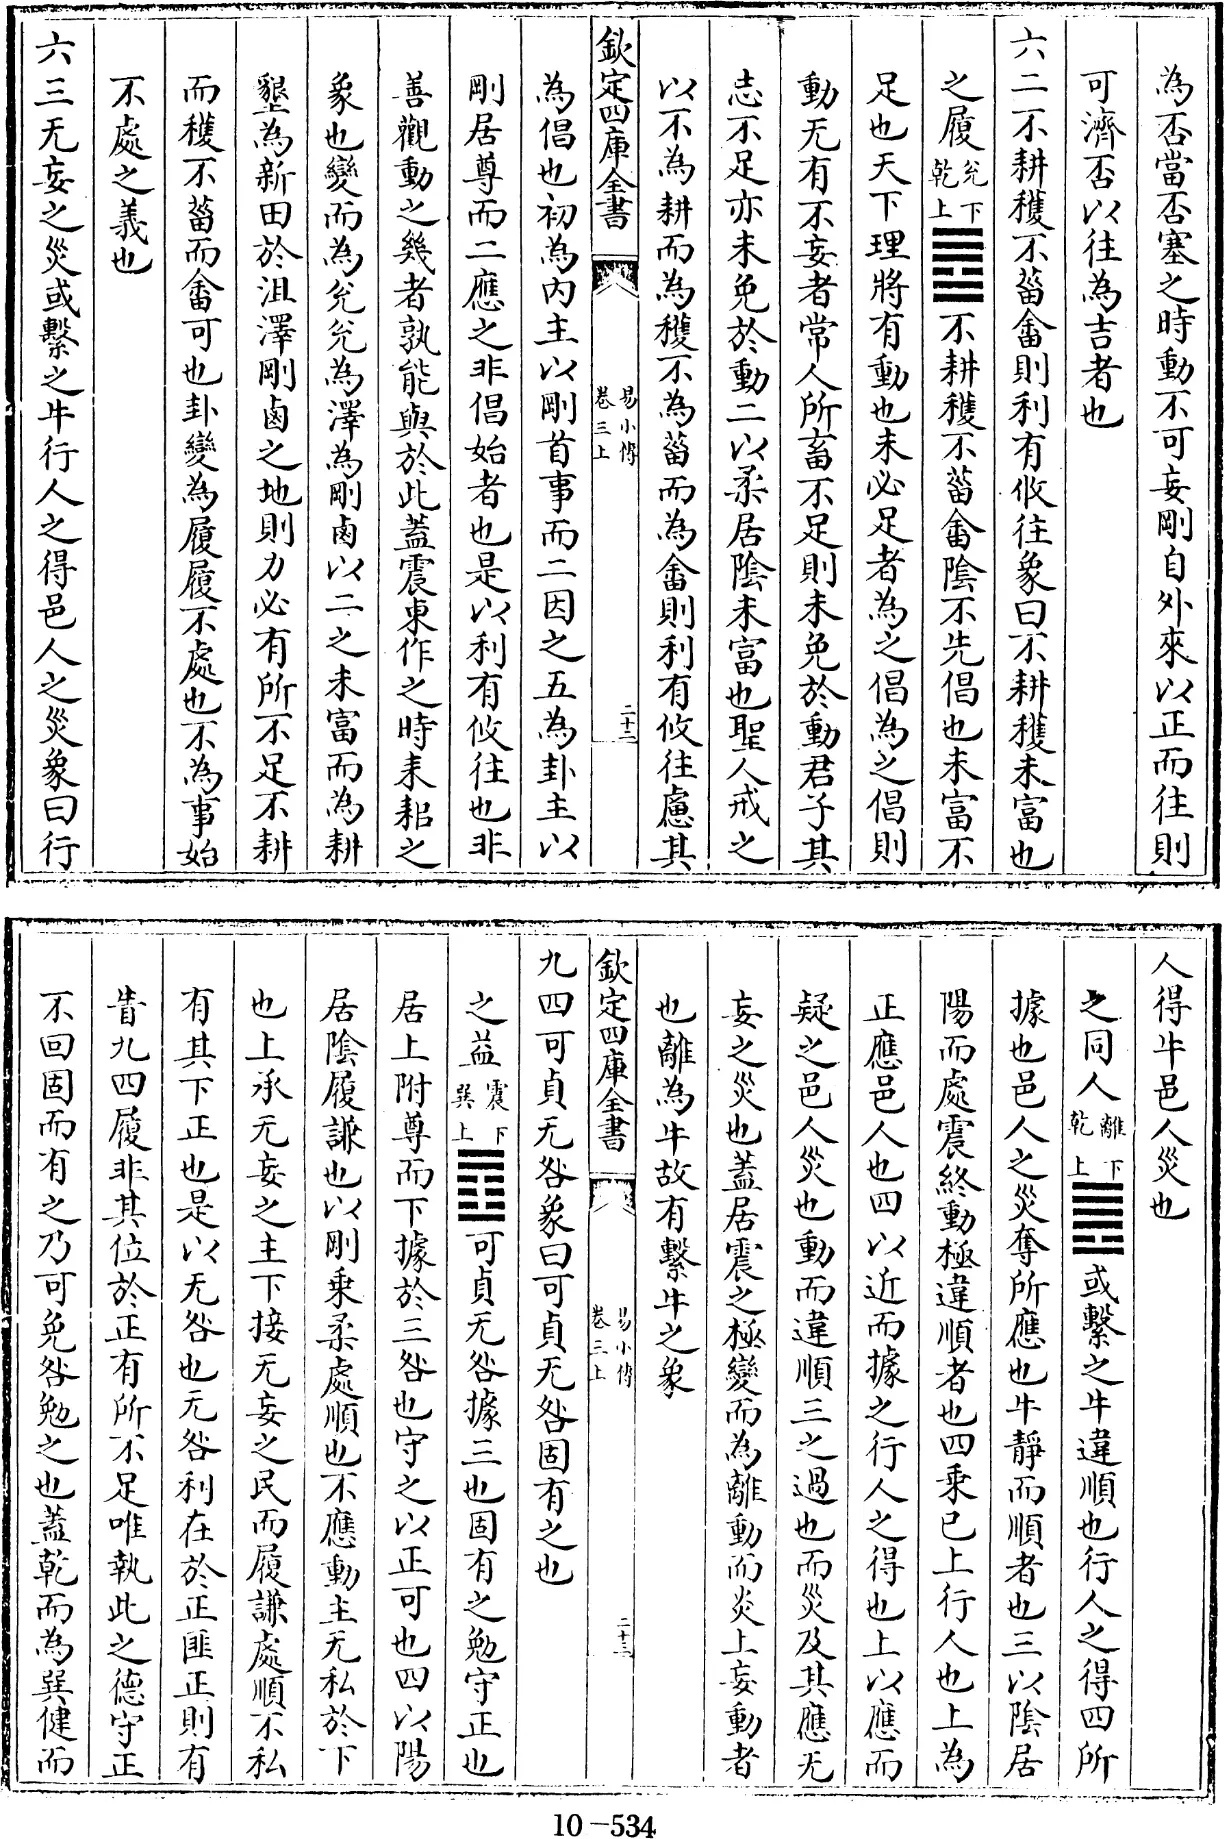 為否當否塞之時動不可妄剛自外來以正而往則
可濟否以往為吉者也
六二不耕穫不菑畬則利有攸往象曰不耕穫未富也
之履兌下乾上䷉不耕穫不菑畬陰不先倡也未富不
足也天下理將有動也未必足者為之倡為之倡則
動无有不妄者常人所畜不足則未免於動君子其
志不足亦未免於動二以柔居陰未富也聖人戒之
以不為耕而為穫不為菑而為畬則利有攸往慮其
欽定四庫全書 易小傳卷三上 二十二
為倡也初為内主以剛首事而二因之五為卦主以
剛居尊而二應之非倡始者也是以利有攸往也非
善觀動之幾者孰能與於此蓋震東作之時耒耜之
象也變而為兌兌為澤為剛鹵以二之未富而為耕
墾為新田於沮澤剛鹵之地則力必有所不足不耕
而穫不菑而畬可也卦變為履履不處也不為事始
不處之義也
六三无妄之災或繫之牛行人之得邑人之災象曰行
人得牛邑人災也
之同人離下乾上䷌或繫之牛違順也行人之得四所
據也邑人之災奪所應也牛靜而順者也三以陰居
陽而處震終動極違順者也四乘已上行人也上為
正應邑人也四以近而據之行人之得也上以應而
疑之邑人災也動而違順三之過也而災及其應无
妄之災也蓋居震之極變而為離動而炎上妄動者
也離為牛故有繫牛之象
欽定四庫全書 易小傳卷三上 二十三
九四可貞无咎象曰可貞无咎固有之也
之益震下巽上䷩可貞无咎據三也固有之勉守正也
居上附尊而下據於三咎也守之以正可也四以陽
居陰履謙也以剛乘柔處順也不應動主无私於下
也上承无妄之主下接无妄之民而履謙處順不私
有其下正也是以无咎也无咎利在於正匪正則有
眚九四履非其位於正有所不足唯執此之德守正
不回固而有之乃可免咎勉之也蓋乾而為巽健而
10-534